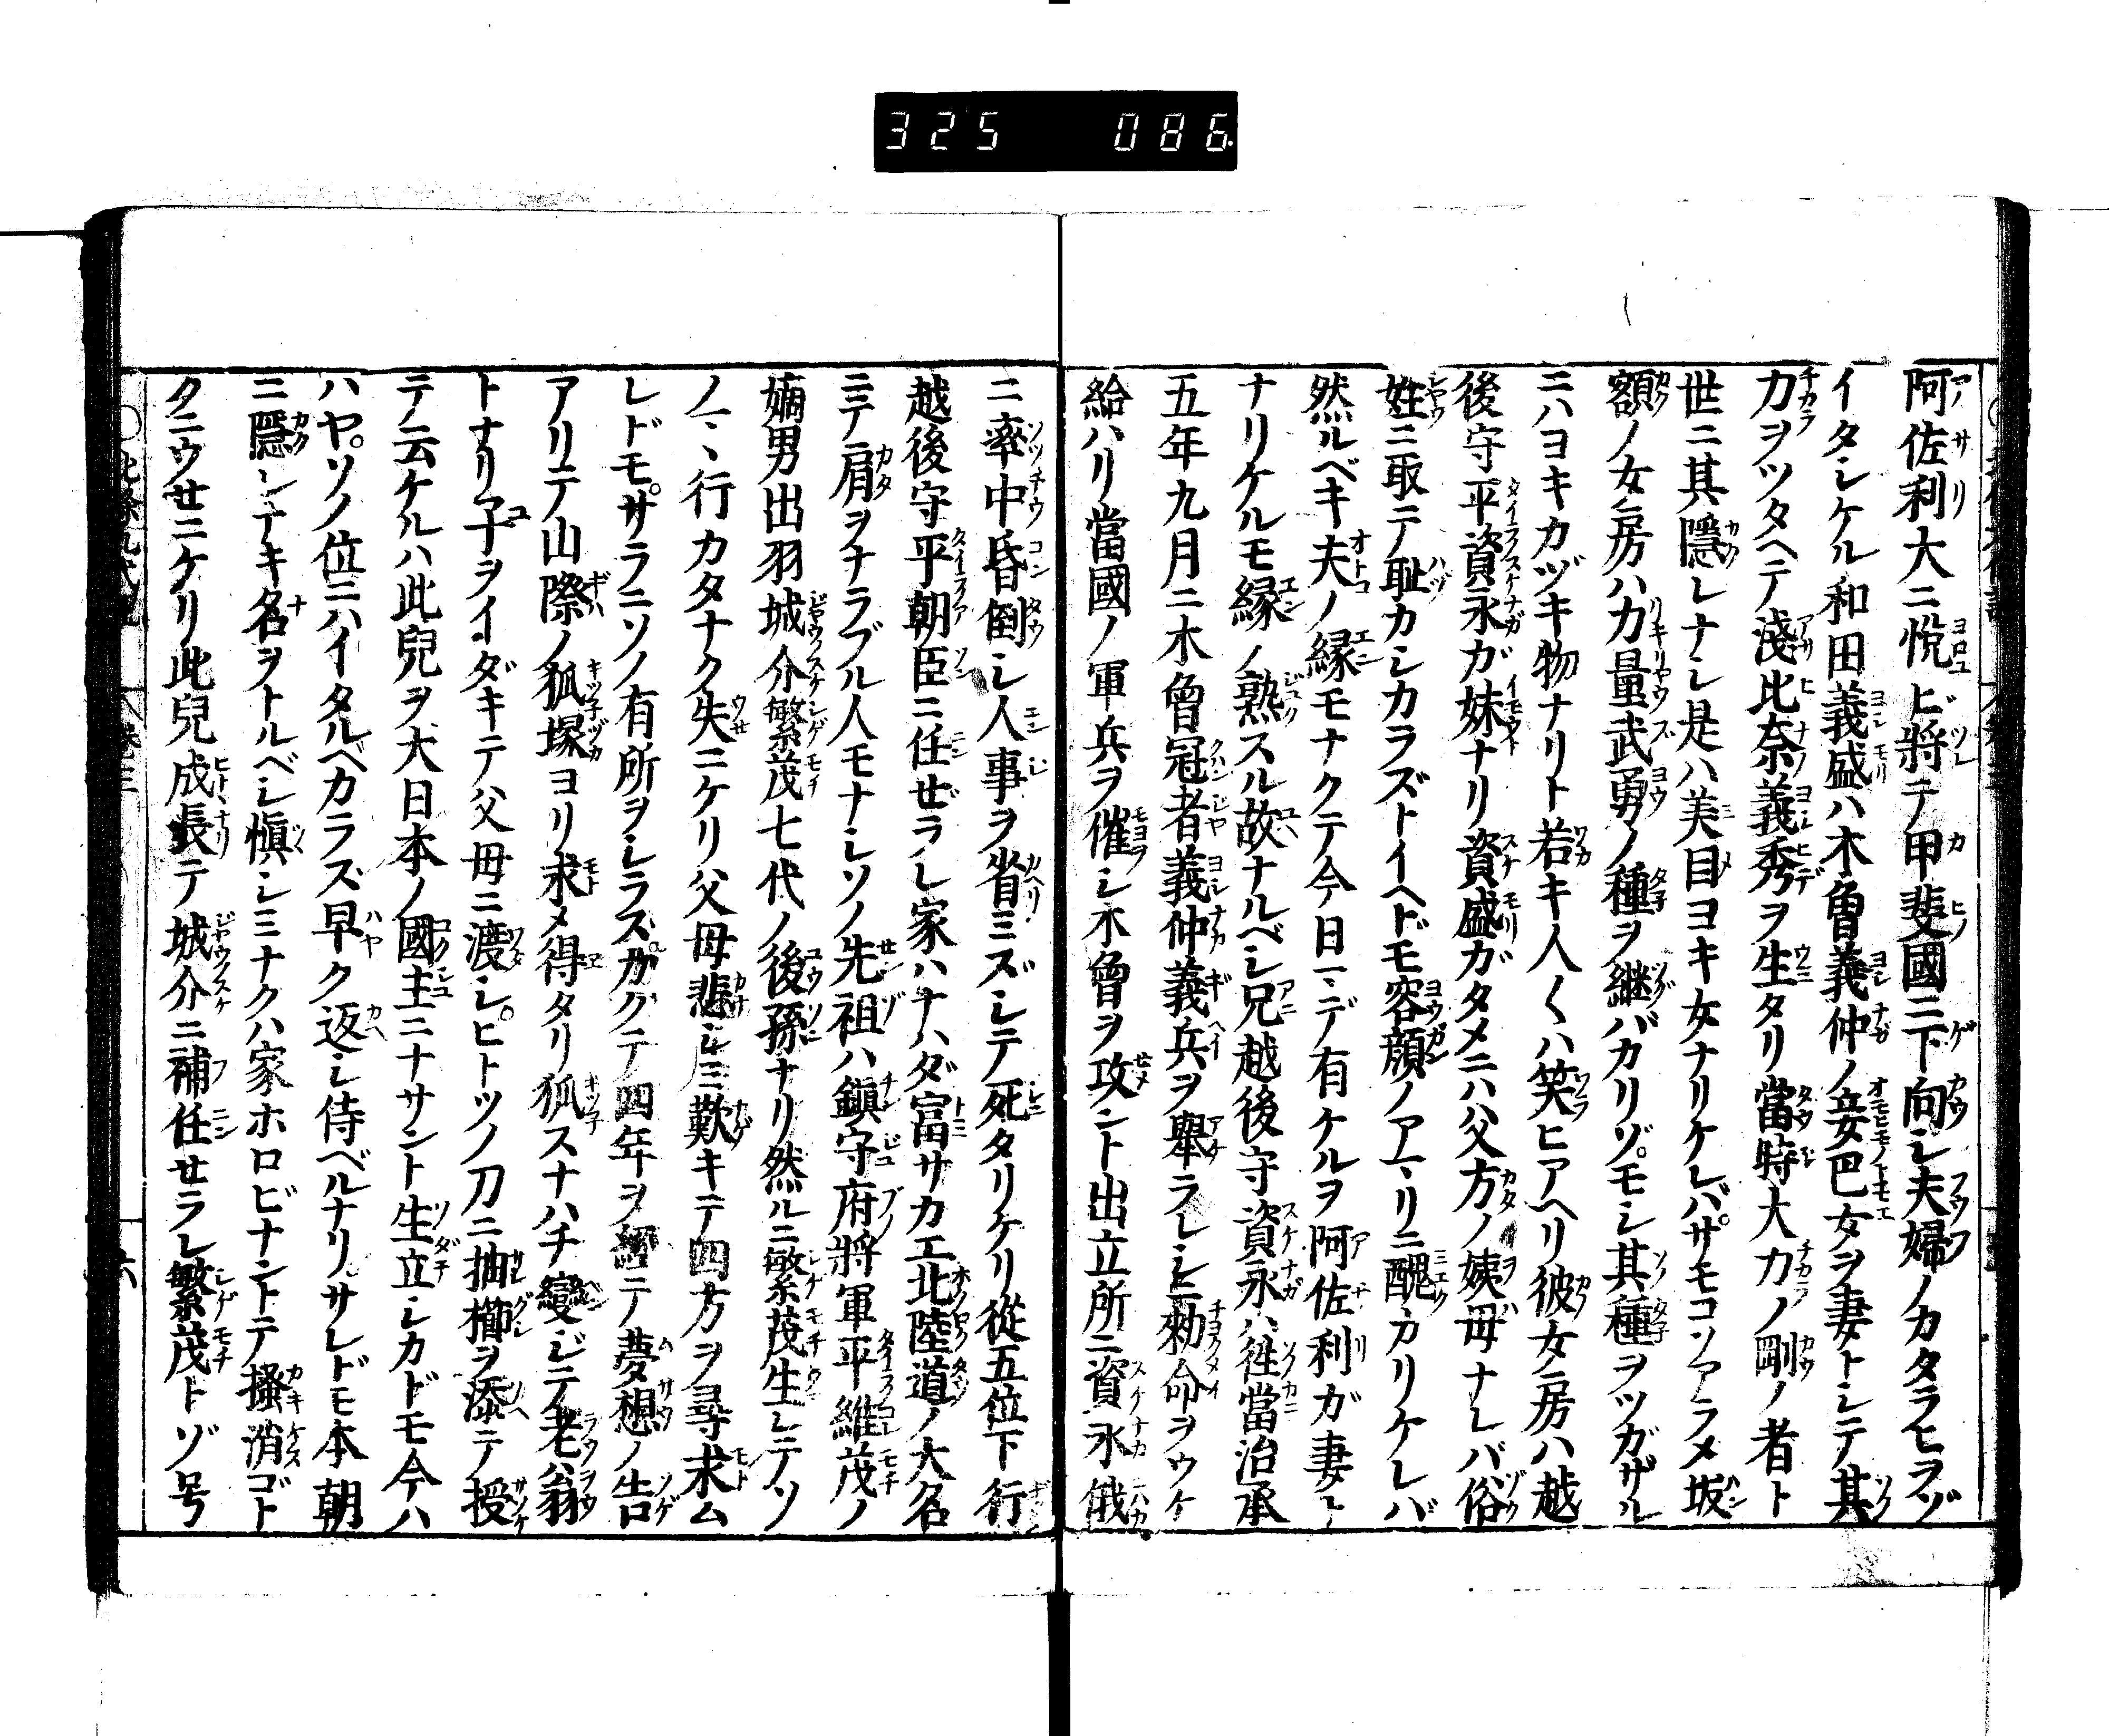 325 086
阿佐利大ニ悦ビ將テ甲斐國ニ下向シ夫婦ノカタラヒヲゾ
イタシケル和田義盛ハ木曽義仲ノ妾巴女ヲ妻トシテ其
力ヲツタヘテ淺比奈義秀ヲ生タリ當時大力ノ剛ノ者ト
世ニ其隱レナシ是ハ美目ヨキ女ナリケレバサモコソアラメ坂
額ノ女房ハ力量武勇ノ種ヲ継バカリゾモシ其種ヲツガザル
ニハヨキカヅキ物ナリト若キ人〱ハ笑ヒアヘリ彼女房ハ越
後守平資永ガ妹ナリ資盛ガタメニハ父方ノ姨母ナレバ俗
姓ニ取テ耻カシカラズトイヘドモ容顔ノアマリニ醜カリケレバ
然ルベキ夫ノ縁モナクテ今日マデ有ケルヲ阿佐利ガ妻ト
ナリケルモ縁ノ熟スル故ナルベシ兄越後守資永ハ徃當治承
五年九月ニ木曽冠者義仲義兵ヲ舉ラレシニ勅命ヲウケ
給ハリ當國ノ軍兵ヲ催シ木曽ヲ攻ント出立所ニ資永俄
ニ卒中昏倒シ人事ヲ省ミズシテ死タリケリ從五位下行
越後守平朝臣ニ任ゼラレ家ハナハダ富サカエ北陸道ノ大名
ニテ肩ヲナラブル人モナシソノ先祖ハ鎭守府將軍平維茂ノ
嫡男出羽城介繁茂七代ノ後孫ナリ然ルニ繁茂生レテソ
ノマヽ行カタナク失ニケリ父母悲シミ歎キテ四方ヲ尋求ム
レドモサラニソノ有所ヲシラズカクテ四年ヲ經テ夢想ノ告
アリテ山際ノ狐塚ヨリ求メ得タリ狐スナハチ變ジテ老翁
トナリ子ヲイダキテ父母ニ渡シヒトツノ刀ニ抽櫛ヲ添テ授
テノ云ケルハ此兒ヲ大日本ノ國主ニナサント生立シカドモ今ハ
ハヤソノ位ニハイタルベカラズ早ク返シ侍ベルナリサレドモ本朝
ニ隱レナキ名ヲトルベシ愼シミナクハ家ホロビナントテ搔消ゴト
クニウセニケリ此兒成長テ城介ニ補任セラレ繁茂トゾ号